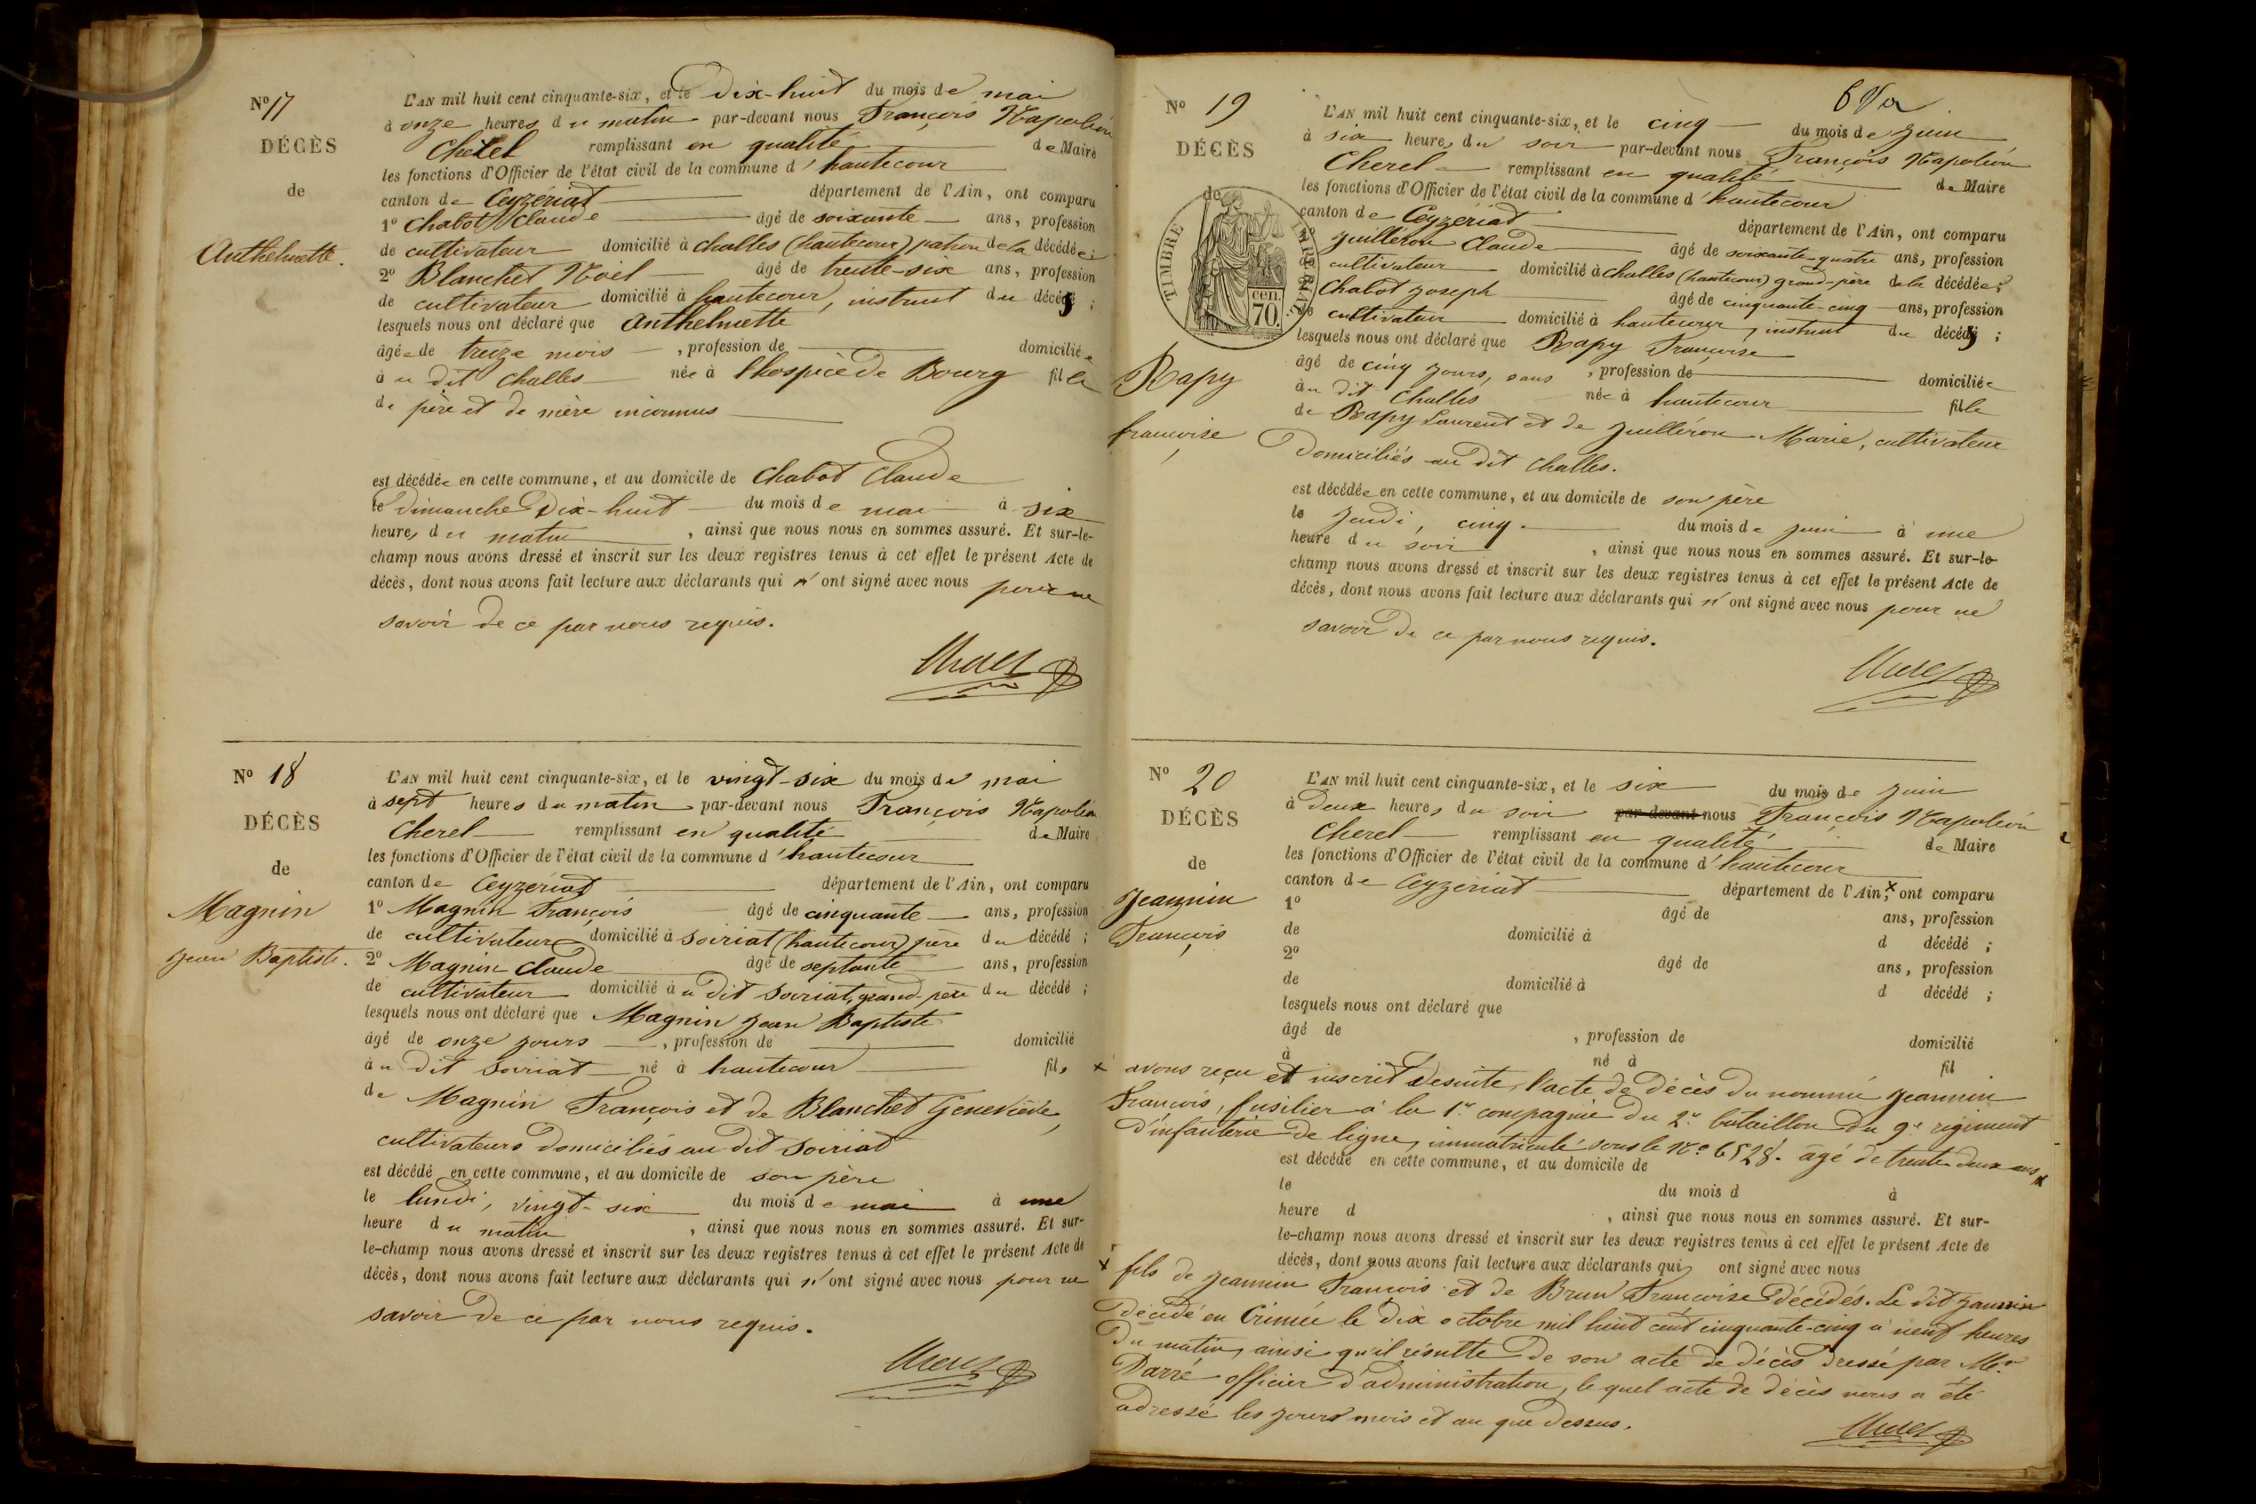 Nº 17
DÉCÈS
de
Anthelmette.
L'AN mil huit cent cinquante-six, et le Dix-huit du mois de mai
à onze heures du matin par-devant nous François Napoléon
Cherel remplissant en qualité de Maire
les fonctions d'Officier de l'état civil de la commune d'hautecour
canton de Ceyzériat département de l'Ain, ont comparu
1º Chabot Claude âgé de soixante ans, profession
de cultivateur domicilié à Challes (hautecour) patron de la décédée;
2º Blanchet Noël âgé de trente-six ans, profession
de cultivateur domicilié à hautecour, instruit du décès;
lesquels nous ont déclaré que Anthelmette
âgée de treize mois, profession de domiciliée
à u dit Challes née à l'hospice de Bourg fille
de père et de mère inconnus
est décédée en cette commune, et au domicile de Chabot Claude
le Dimanche Dix-huit du mois de mai à six
heures du matin, ainsi que nous nous en sommes assuré. Et sur-le-
champ nous avons dressé et inscrit sur les deux registres tenus à cet effet le présent Acte de
décès, dont nous avons fait lecture aux déclarants qui n'ont signé avec nous pour ne
savoir de ce par nous requis.
Cherel
Nº 18
DÉCÈS
de
Magnin
Jean Baptiste.
L'AN mil huit cent cinquante-six, et le vingt-six du mois de mai
à sept heures du matin par-devant nous François Napoléon
Cherel remplissant en qualité de Maire
les fonctions d'Officier de l'état civil de la commune d'hautecour
canton de Ceyzériat département de l'Ain, ont comparu
1º Magnin François âgé de cinquante ans, profession
de cultivateur domicilié à soiriat (hautecour) père du décédé;
2º Magnin Claude âgé de septante ans, profession
de cultivateur domicilié à u dit soiriat, grand-père du décédé;
lesquels nous ont déclaré que Magnin Jean Baptiste
âgé de onze jours, profession de domicilié
à u dit soiriat né à hautecour fils
de Magnin François et de Blanchet Geneviève,
cultivateurs domiciliés au dit soiriat
est décédé en cette commune, et au domicile de son père
le lundi, vingt-six du mois de mai à une
heure du matin, ainsi que nous nous en sommes assuré. Et sur-
le-champ nous avons dressé et inscrit sur les deux registres tenus à cet effet le présent Acte de
décès, dont nous avons fait lecture aux déclarants qui n'ont signé avec nous pour ne
savoir de ce par nous requis.
Cherel
Nº 19
DÉCÈS
de
TIMBRE IMPÉRIAL
70 cen.
Rapy
françoise
L'AN mil huit cent cinquante-six, et le cinq du mois de juin
à six heures du soir par-devant nous François Napoléon
Cherel remplissant en qualité de Maire
les fonctions d'Officier de l'état civil de la commune d'hautecour
canton de Ceyzériat département de l'Ain, ont comparu
Juilléron Claude âgé de soixante-quatre ans, profession
cultivateur domicilié à Challes (hautecour) grand-père de la décédée;
Chabot Joseph âgé de cinquante-cinq ans, profession
de cultivateur domicilié à hautecour, instruit du décès;
lesquels nous ont déclaré que Rapy Françoise
âgé de cinq jours, sans, profession de domiciliée
à u dit Challes née à hautecour fille
de Rapy Laurent et de Juilléron Marie, cultivateurs
Domiciliés au dit Challes.
est décédée en cette commune, et au domicile de son père
le jeudi, cinq du mois de juin à une
heure du soir, ainsi que nous nous en sommes assuré. Et sur-le-
champ nous avons dressé et inscrit sur les deux registres tenus à cet effet le présent Acte de
décès, dont nous avons fait lecture aux déclarants qui n'ont signé avec nous pour ne
savoir de ce par nous requis.
Cherel
Nº 20
DÉCÈS
de
Jeannin
François
L'AN mil huit cent cinquante-six, et le six du mois de juin
à deux heures du soir par-devant nous François Napoléon
Cherel remplissant en qualité de Maire
les fonctions d'Officier de l'état civil de la commune d'hautecour
canton de Ceyzériat département de l'Ain, x ont comparu
1º âgé de ans, profession
de domicilié à d décédé;
2º âgé de ans, profession
de domicilié à d décédé;
lesquels nous ont déclaré que
âgé de, profession de domicilié
à né à fil
x avons reçu et inscrit desuite, l'acte de décès du nommé Jeannin
François, fusilier à la 1re compagnie du 2e bataillon du 9e régiment
d'infanterie de ligne, immatriculé sous le Nº 6528. âgé de trente deux ans, x
est décédé en cette commune, et au domicile de
le du mois d à
heure d, ainsi que nous nous en sommes assuré. Et sur-
le-champ nous avons dressé et inscrit sur les deux registres tenus à cet effet le présent Acte de
décès, dont nous avons fait lecture aux déclarants qui ont signé avec nous
x fils de Jeannin François et de Brun Françoise Décédés. Le dit Jeannin
décédé en Crimée le dix octobre mil huit cent cinquante-cinq à neuf heures
du matin, ainsi qu'il résulte de son acte de décès dressé par Mr
Darré officier d'administration, le quel acte de décès nous a été
adressé les jours mois et an que dessus.
Cherel